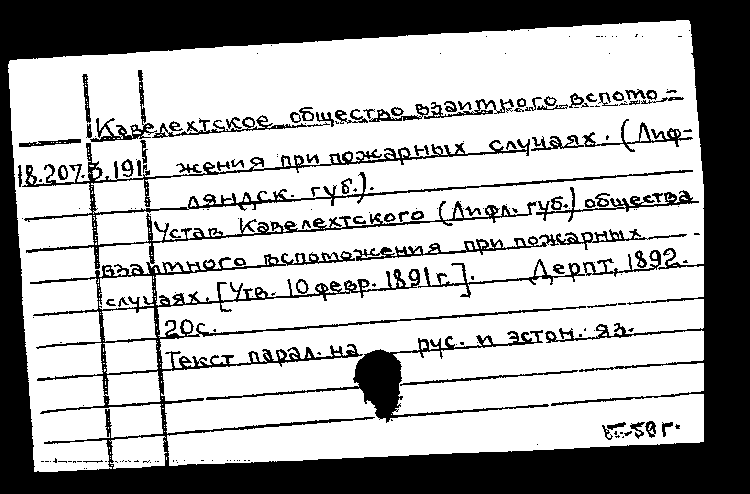 Кавелехтское общество взаимного вспомо-
18.207.3.191. жения при пожарных случаях. (Лиф-
ляндск. губ.).
Устав Кавелехтского (Лифл. губ.) общества
взаимного вспоможения при пожарных
случаях. [Утв. 10 февр. 1891 г.]. Дерпт, 1892.
20с.
Текст парал. на рус. и эстон. яз.